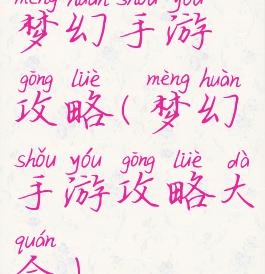 mèng huàn shǒu yóu
梦幻手游
gōng lüè mèng huàn
攻略(梦幻
shǒu yóu gōng lüè dà
手游攻略大
quán
全)